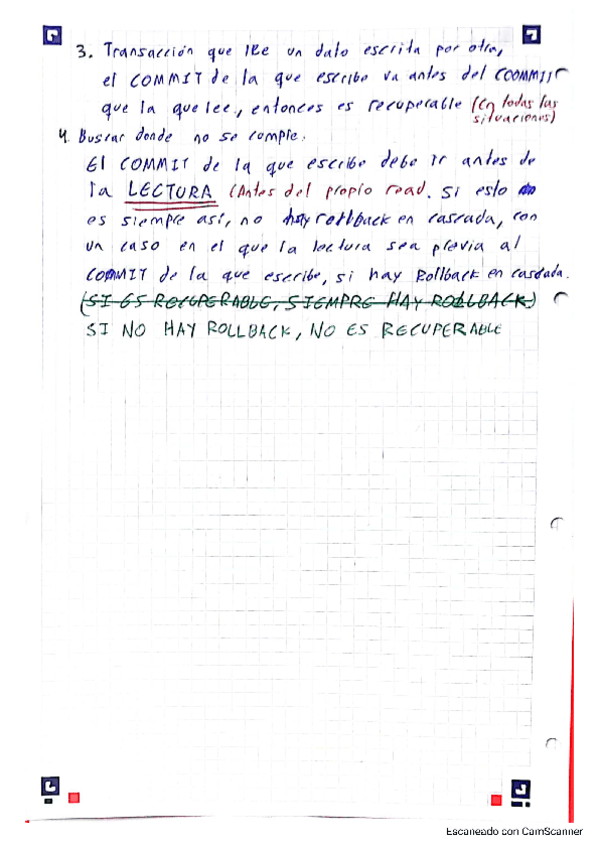 3. Transacción que lee un dato escrita por otra,
el COMMIT de la que escribe va antes del COOMMIT
que la que lee, entonces es recuperable (En todas las
situaciones)
4. Buscar donde no se cumple.
El COMMIT de la que escribe debe ir antes de
la LECTURA (Antes del propio read. Si esto
es siempre así, no hay rollback en cascada, con
un caso en el que la lectura sea previa al
COMMIT de la que escribe, si hay Rollback en cascada.
(SI ES RECUPERABLE, SIEMPRE HAY ROLLBACK)
SI NO HAY ROLLBACK, NO ES RECUPERABLE
Escaneado con CamScanner